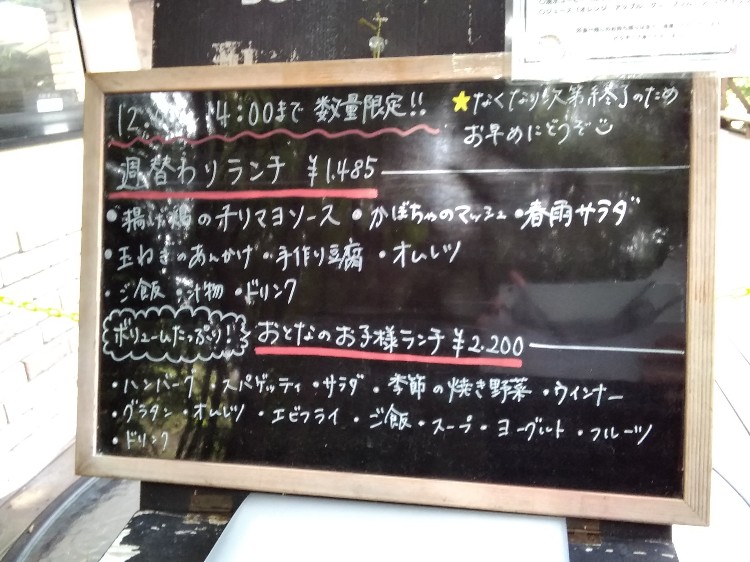 12 4:00まで 数量限定!!
★なくなり次第終了のため
お早めにどうぞ
週替わりランチ ¥1.485
・揚げ鶏のチリマヨソース・かぼちゃのマッシュ・春雨サラダ
・玉ねぎのあんかけ・手作り豆腐・オムレツ
・ご飯・汁物・ドリンク
ボリュームたっぷり! おとなのお子様ランチ ¥2.200
・ハンバーグ・スパゲッティ・サラダ・季節の焼き野菜・ウインナー
・グラタン・オムレツ・エビフライ・ご飯・スープ・ヨーグルト・フルーツ
・ドリンク